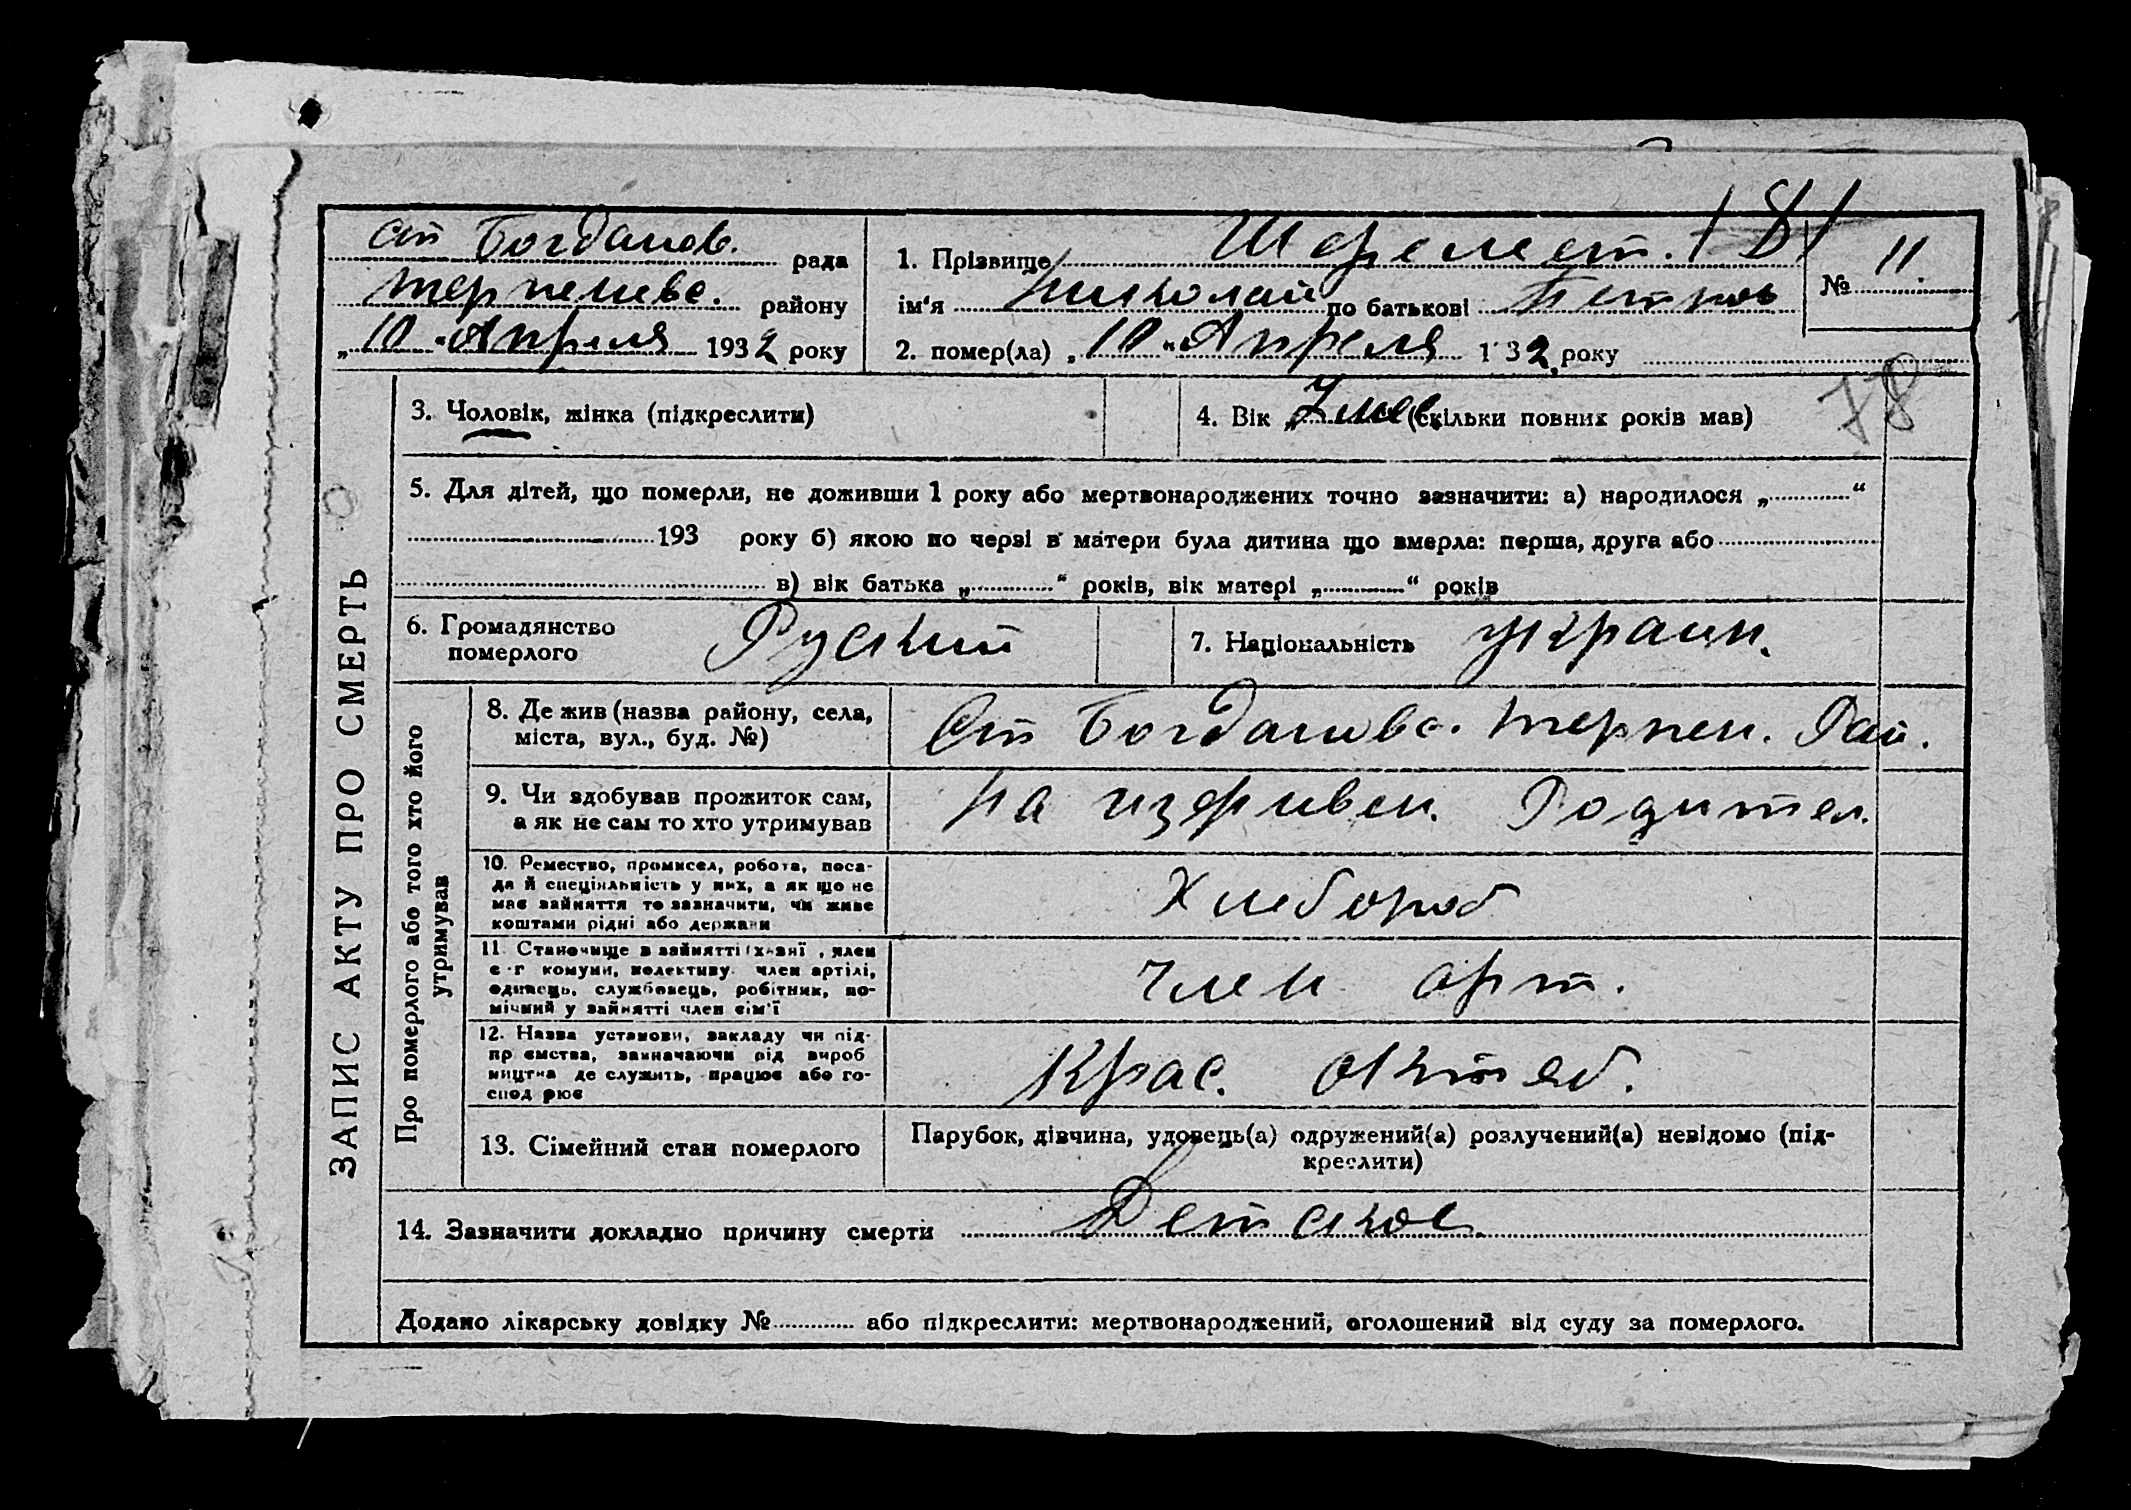 ст Богданов. рада
терпениевс. району
„10“ Апреля 1932 року
1. Прізвище Шеремет.
№ 11.
ім'я Николай по батькові Петров
2. помер(ла) „10“ Апреля 1932 року
78
3. Чоловік, жінка (підкреслити)
4. Вік „ мес (скільки повних років мав)
5. Для дітей, що померли, не доживши 1 року або мертвонароджених точно зазначити: а) народилося „ “
193 року б) якою по черзі в матери була дитина що вмерла: перша, друга або
в) вік батька „ “ років, вік матері „ “ років
6. Громадянство
померлого
Руский
7. Національність украин.
ЗАПИС АКТУ ПРО СМЕРТЬ
Про померлого або того хто його
утримував
8. Де жив (назва району, села,
міста, вул., буд. №)
Ст Богдановс. терпен. Рай.
9. Чи здобував прожиток сам,
а як не сам то хто утримував
на иждивен. Родител.
10. Ремество, промисел, робота, поса-
да й спеціяльність у них, а як що не
має зайняття то зазначити, чи живе
коштами рідні або держави
Хлебороб
11. Становище в зайнятті , член
с-г комуни, колективу член артілі,
одинець, службовець, робітник, по-
мічний у зайнятті член сім'ї
Член арт.
12. Назва установи, закладу чи під-
приємства, зазначаючи рід вироб
ництва де служить, працює або го-
сподарює
Крас. октяб.
13. Сімейний стан померлого
Парубок, дівчина, удовець(а) одружений(а) розлучений(а) невідомо (під-
креслити)
14. Зазначити докладно причину смерти Детское
Додано лікарську довідку № або підкреслити: мертвонароджений, оголошений від суду за померлого.